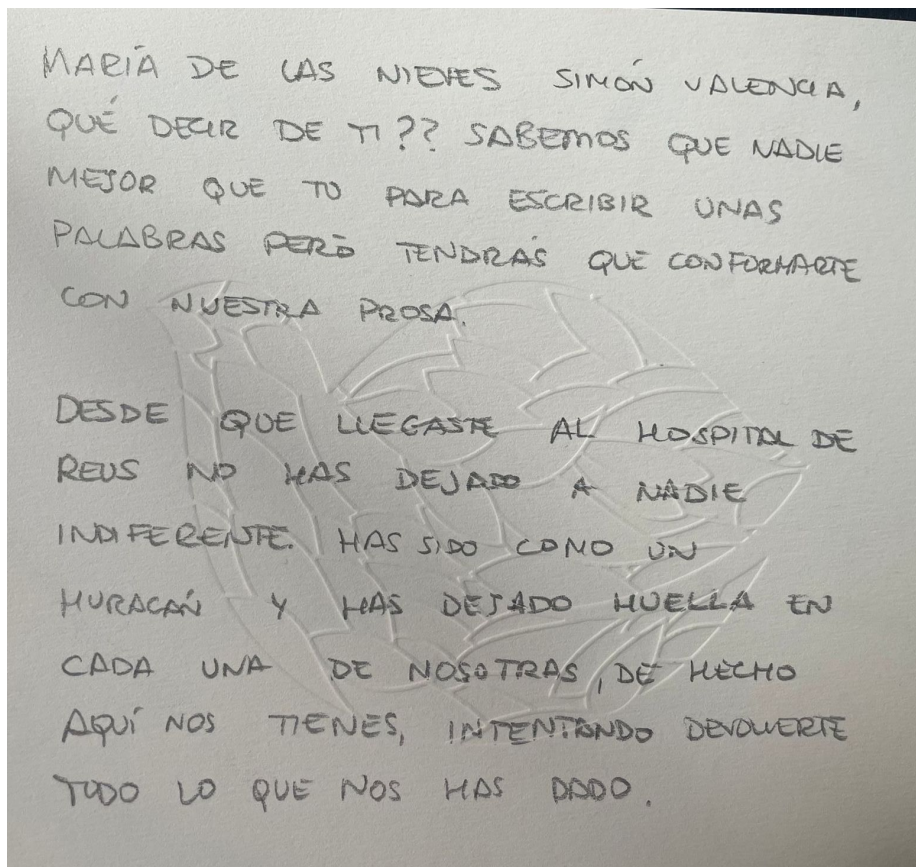 MARÍA DE LAS NIEVES SIMÓN VALENCIA,
QUÉ DECIR DE TI?? SABEMOS QUE NADIE
MEJOR QUE TU PARA ESCRIBIR UNAS
PALABRAS PERO TENDRÁS QUE CONFORMARTE
CON NUESTRA PROSA.
DESDE QUE LLEGASTE AL HOSPITAL DE
REUS NO HAS DEJADO A NADIE
INDIFERENTE. HAS SIDO COMO UN
HURACÁN Y HAS DEJADO HUELLA EN
CADA UNA DE NOSOTRAS, DE HECHO
AQUÍ NOS TIENES, INTENTANDO DEVOLVERTE
TODO LO QUE NOS HAS DADO.